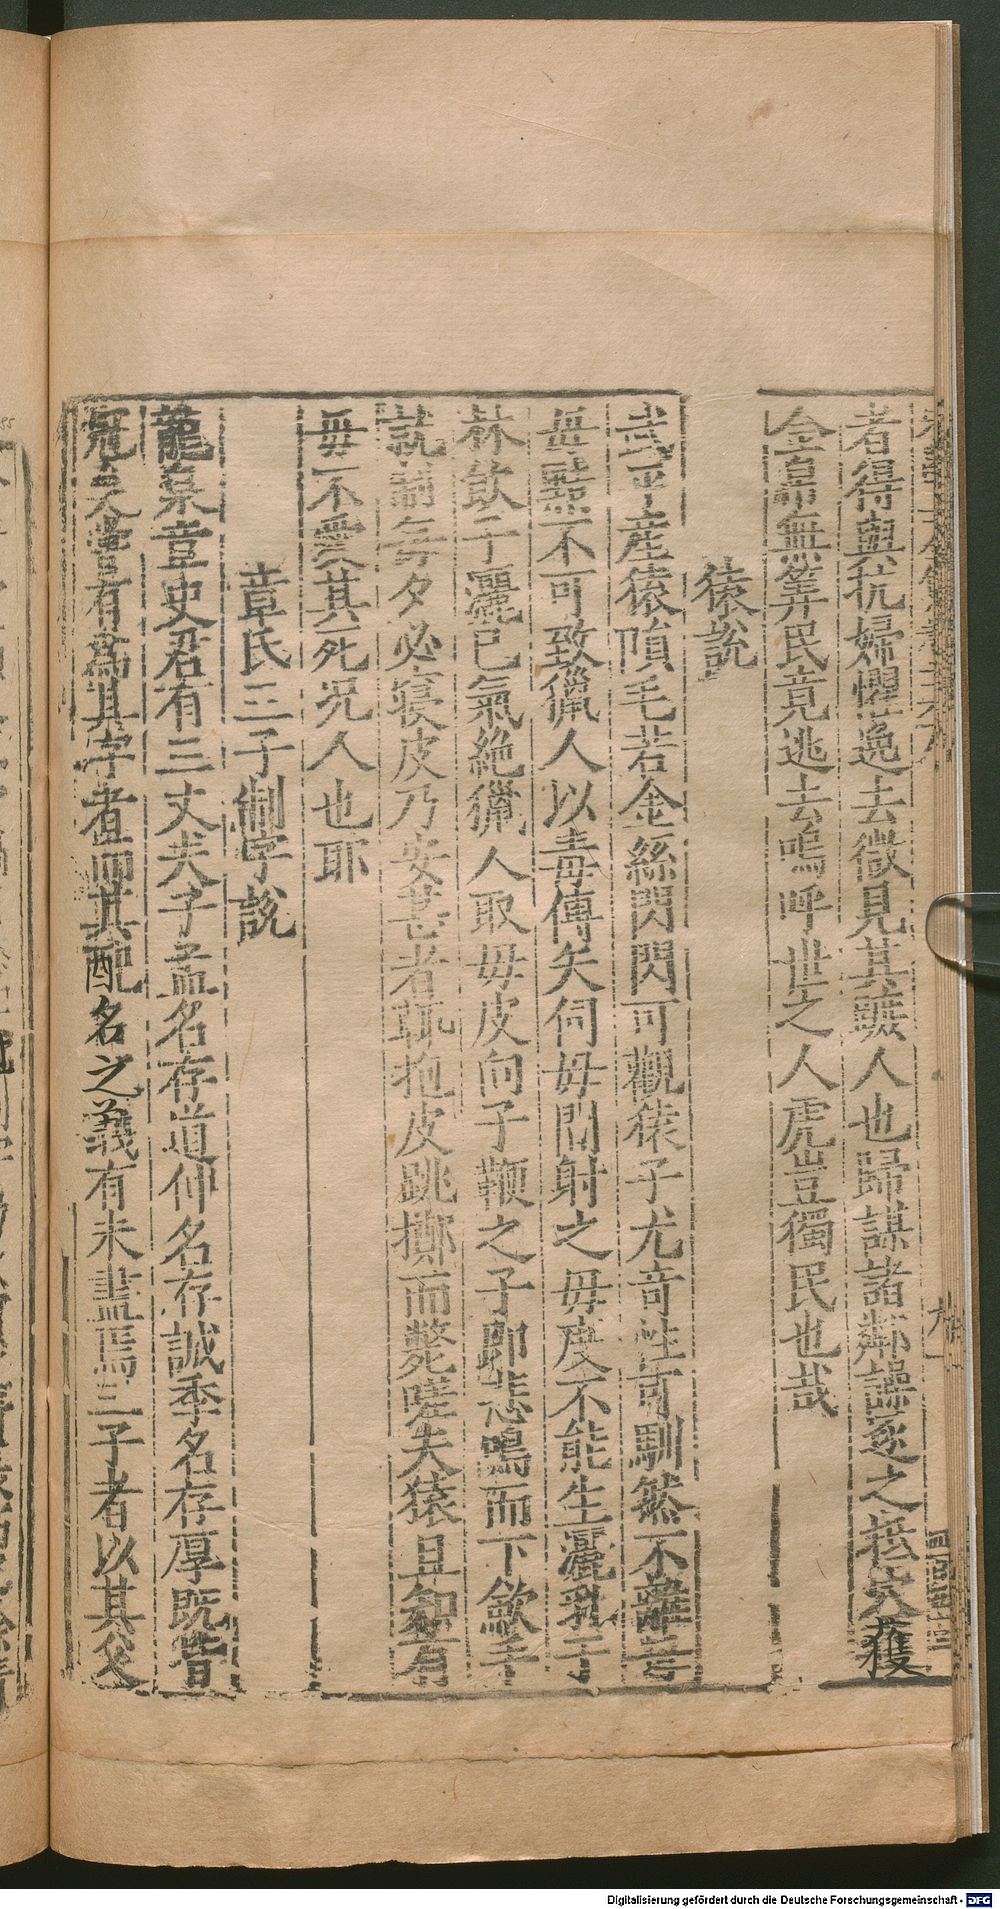 者得與抗婦懼逸去微見其蹠人也歸謀諸鄰譟逐之抵穴獲
金帛無筭民竟逃去嗚呼世之人虎豈獨民也哉
猿說
武平產猿猿毛若金絲閃閃可觀猿子尤奇性可馴然不離母
毋黠不可致獵人以毒傅矢伺毋間射之毋度不能生灑乳于
林飲子灑已氣絶獵人取毋皮向子鞭之子即悲鳴而下歛手
就制每夕必寢皮乃安甚者輒抱皮跳擲而斃嗟夫猿且知有
毋不愛其死况人也耶
章氏三子制字說
龍泉章史君有三丈夫子孟名存道仲名存誠季名存厚既皆
冠矣嘗有爲其字者而其配名之義有未盡焉三子者以其父
Digitalisierung gefördert durch die Deutsche Forschungsgemeinschaft - DFG